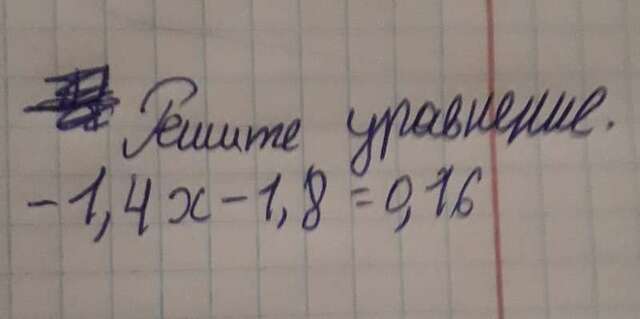 Решите уравнение.
-1,4x-1,8=0,16